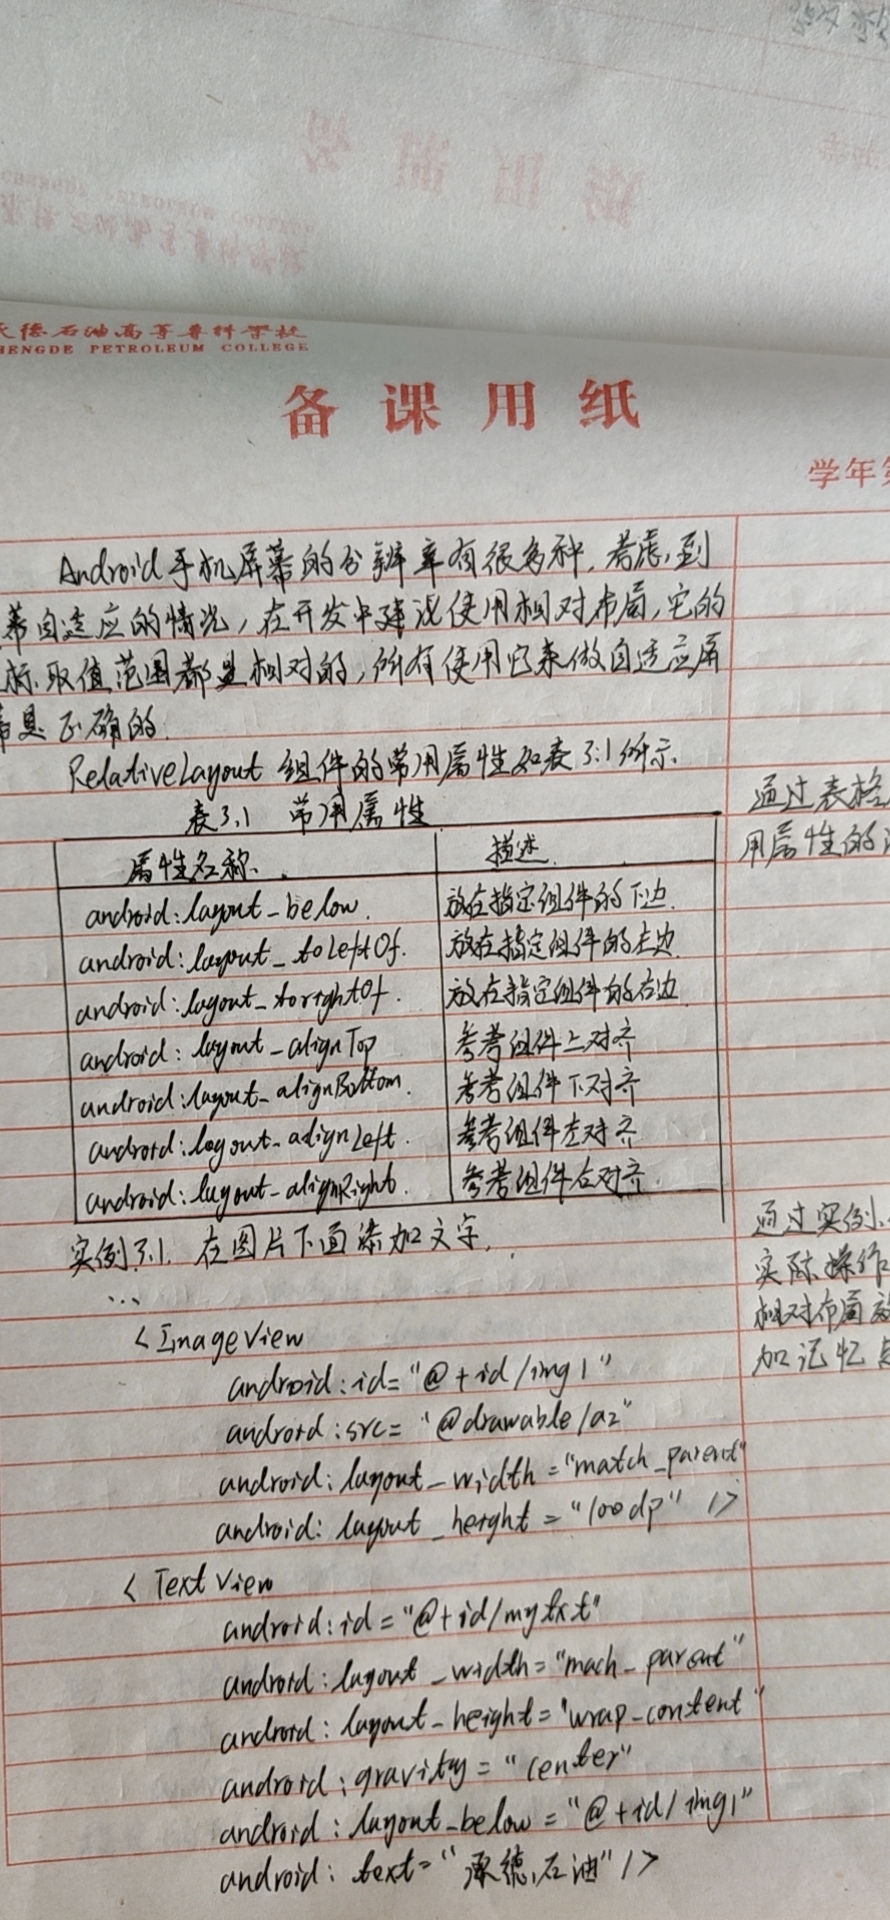 德石油高等专科学校
HENGDE PETROLEUM COLLEGE
备课用纸
学年
Android手机屏幕的分辨率有很多种,考虑到
幕自适应的情况,在开发中建议使用相对布局,它的
标取值范围都是相对的,所有使用它来做自适应屏
是正确的.
RelativeLayout 组件的常用属性如表3.1所示.
表3.1 常用属性
属性名称. 描述.
android:layout_below. 放在指定组件的下边.
android:layout_toLeftOf. 放在指定组件的左边.
android:layout_torightOf. 放在指定组件的右边
android:layout_alignTop 参考组件上对齐
android:layout_alignBottom. 参考组件下对齐
android:layout_alignLeft. 参考组件左对齐
android:layout_alignRight. 参考组件右对齐.
通过表格
用属性的
实例3.1. 在图片下面添加文字.
...
<ImageView
android:id="@+id/img1"
android:src="@drawable/a2"
android:layout_width="match_parent"
android:layout_height="100dp" />
<TextView
android:id="@+id/mytxt"
android:layout_width="mach_parent"
android:layout_height="wrap_content"
android:gravity="center"
android:layout_below="@+id/img1"
android:text="承德石油"/>
通过实例.
实际操作
相对布局
加记忆